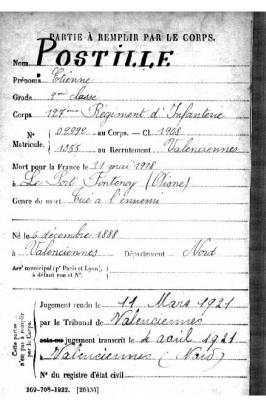 PARTIE À REMPLIR PAR LE CORPS.
Nom POSTILLE
Prénoms Etienne
Grade 2me classe
Corps 127me Régiment d'Infanterie
N° 02992 au Corps. — Cl. 1908
Matricule. 1055 au Recrutement Valenciennes
Mort pour la France le 31 mai 1918
à Le Port Fontenoy (Aisne)
Genre de mort Tué à l'ennemi
Né le 6 décembre 1888
à Valenciennes Département Nord
Arr' municipal (p' Paris et Lyon), à défaut rue et N°.
Cette partie n'est pas à remplir par le Corps.
Jugement rendu le 11 Mars 1921
par le Tribunal de Valenciennes
jugement transcrit le 4 avril 1921
Valenciennes (Nord)
N° du registre d'état civil
269-708-1922. [26434]